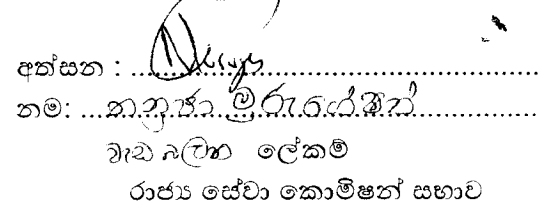 අත්සන : ..................................................
නම: ...තනුජා මුරුගේසන්..................
වැඩ බලන ලේකම්
රාජ්‍ය සේවා කොමිෂන් සභාව